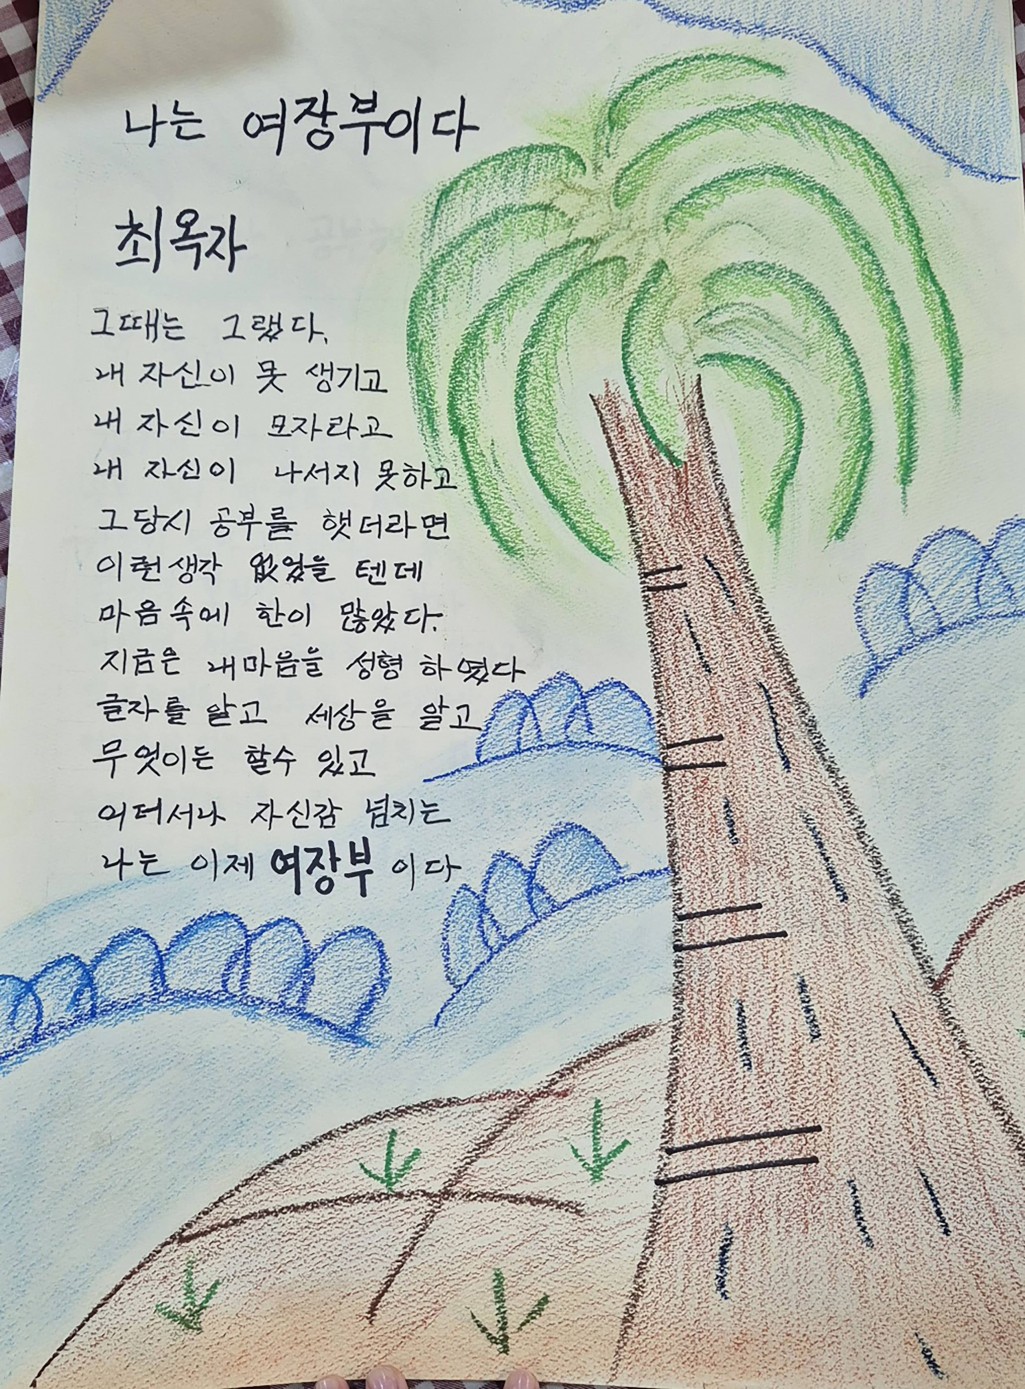 나는 여장부이다
최옥자
그때는 그랬다.
내 자신이 못 생기고
내 자신이 모자라고
내 자신이 나서지 못하고
그당시 공부를 햇더라면
이런생각 없었을 텐데
마음속에 한이 많았다.
지금은 내마음을 성형 하였다
글자를 알고 세상을 알고
무엇이든 할수 있고
어더서나 자신감 넘치는
나는 이제 여장부 이다